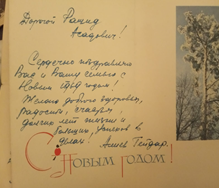 Дорогой Рашид
Асадович!
Сердечно поздравляю
Вас и Вашу семью с
Новым 1969 годом!
Желаю доброго здоровья,
радости, счастья,
долгих лет жизни и
успехов в
делах!
Алиев Гейдар.
С НОВЫМ ГОДОМ!